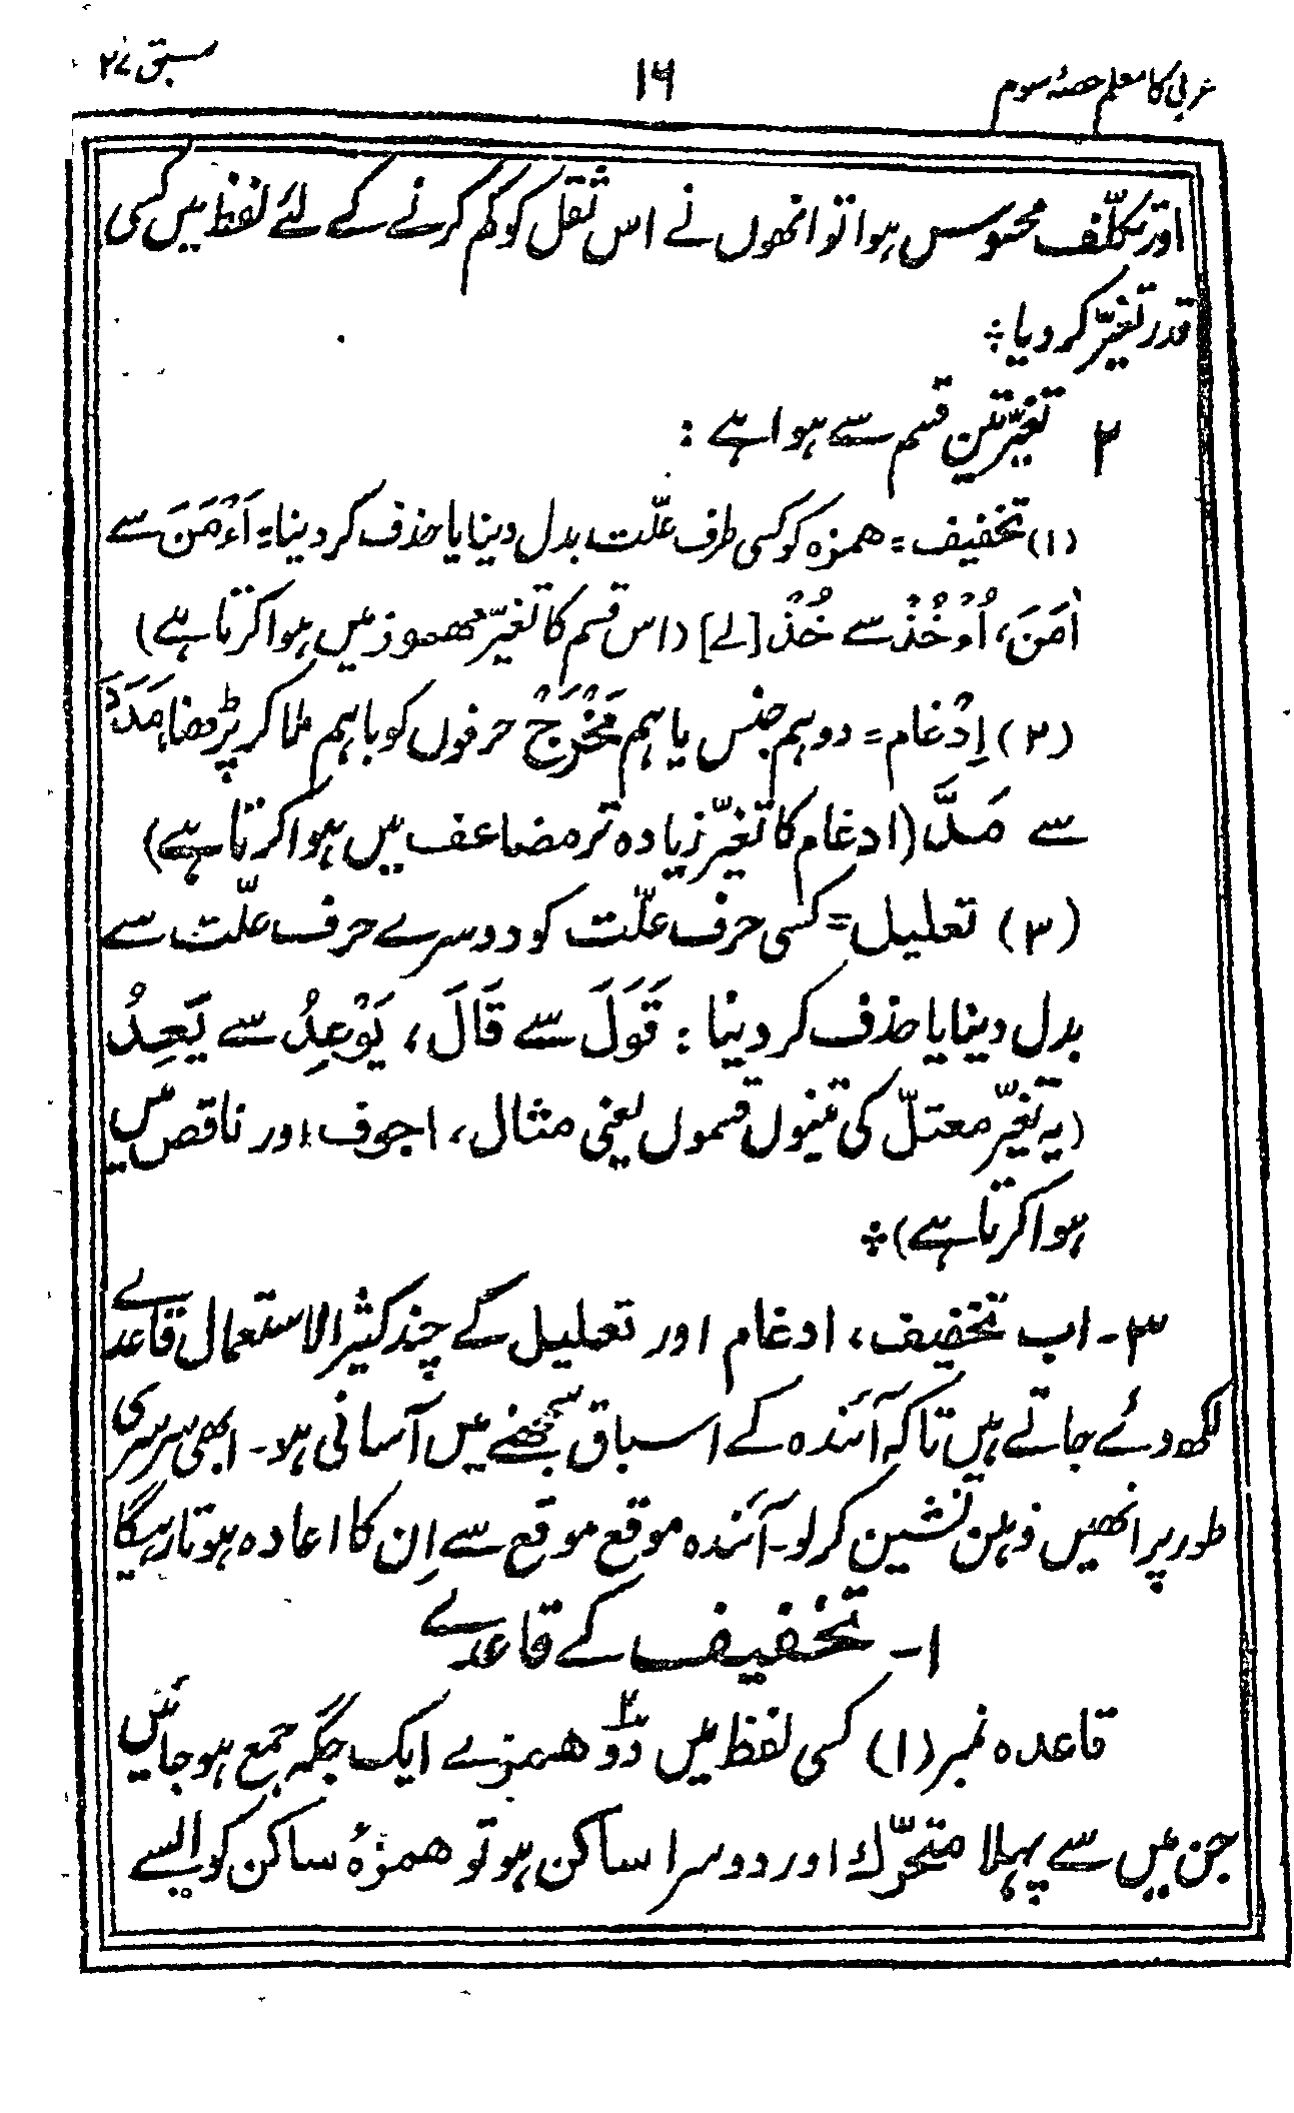 عربی کا معلم حصۂ سوم
۱۶
سبق ۲۷
اور تکلّف محسوس ہوا تو انھوں نے اس ثقل کو کم کرنے کے لئے لفظ میں کسی
قدر تغیّر کر دیا ❊
۲ تغیّر تین قسم سے ہوا ہے :
(۱) تخفیف = ہمزہ کو کسی حرف علّت بدل دینا یا حذف کر دینا: اَءْمَنَ سے
اٰمَنَ، اُءْخُذْ سے خُذْ [لے] (اس قسم کا تغیّر مہموز میں ہوا کرتا ہے)
(۲) اِدْغام = دو ہم جنس یا ہم مَخْرَجْ حرفوں کو باہم ملا کر پڑھنا: مَدَدَ
سے مَدَّ (ادغام کا تغیّر زیادہ تر مضاعف میں ہوا کرتا ہے)
(۳) تعلیل = کسی حرف علّت کو دوسرے حرف علّت سے
بدل دینا یا حذف کر دینا : قَوَلَ سے قَالَ، یَوْعِدُ سے یَعِدُ
(یہ تغیّر معتلّ کی تینوں قسموں یعنی مثال، اجوف اور ناقص میں
ہوا کرتا ہے) ❊
۳- اب تخفیف، ادغام اور تعلیل کے چند کثیر الاستعمال قاعدے
لکھ دئے جاتے ہیں تاکہ آئندہ کے اسباق سمجھنے میں آسانی ہو۔ ابھی سرسری
طور پر انھیں ذہن نشین کر لو۔ آئندہ موقع موقع سے اِن کا اعادہ ہوتا رہیگا
۱- تخفیف کے قاعدے
قاعدہ نمبر (۱) کسی لفظ میں دوؔ ہمزے ایک جگہ جمع ہو جائیں
جن میں سے پہلا متحرّک اور دوسرا ساکن ہو تو ہمزۂ ساکن کو ایسے